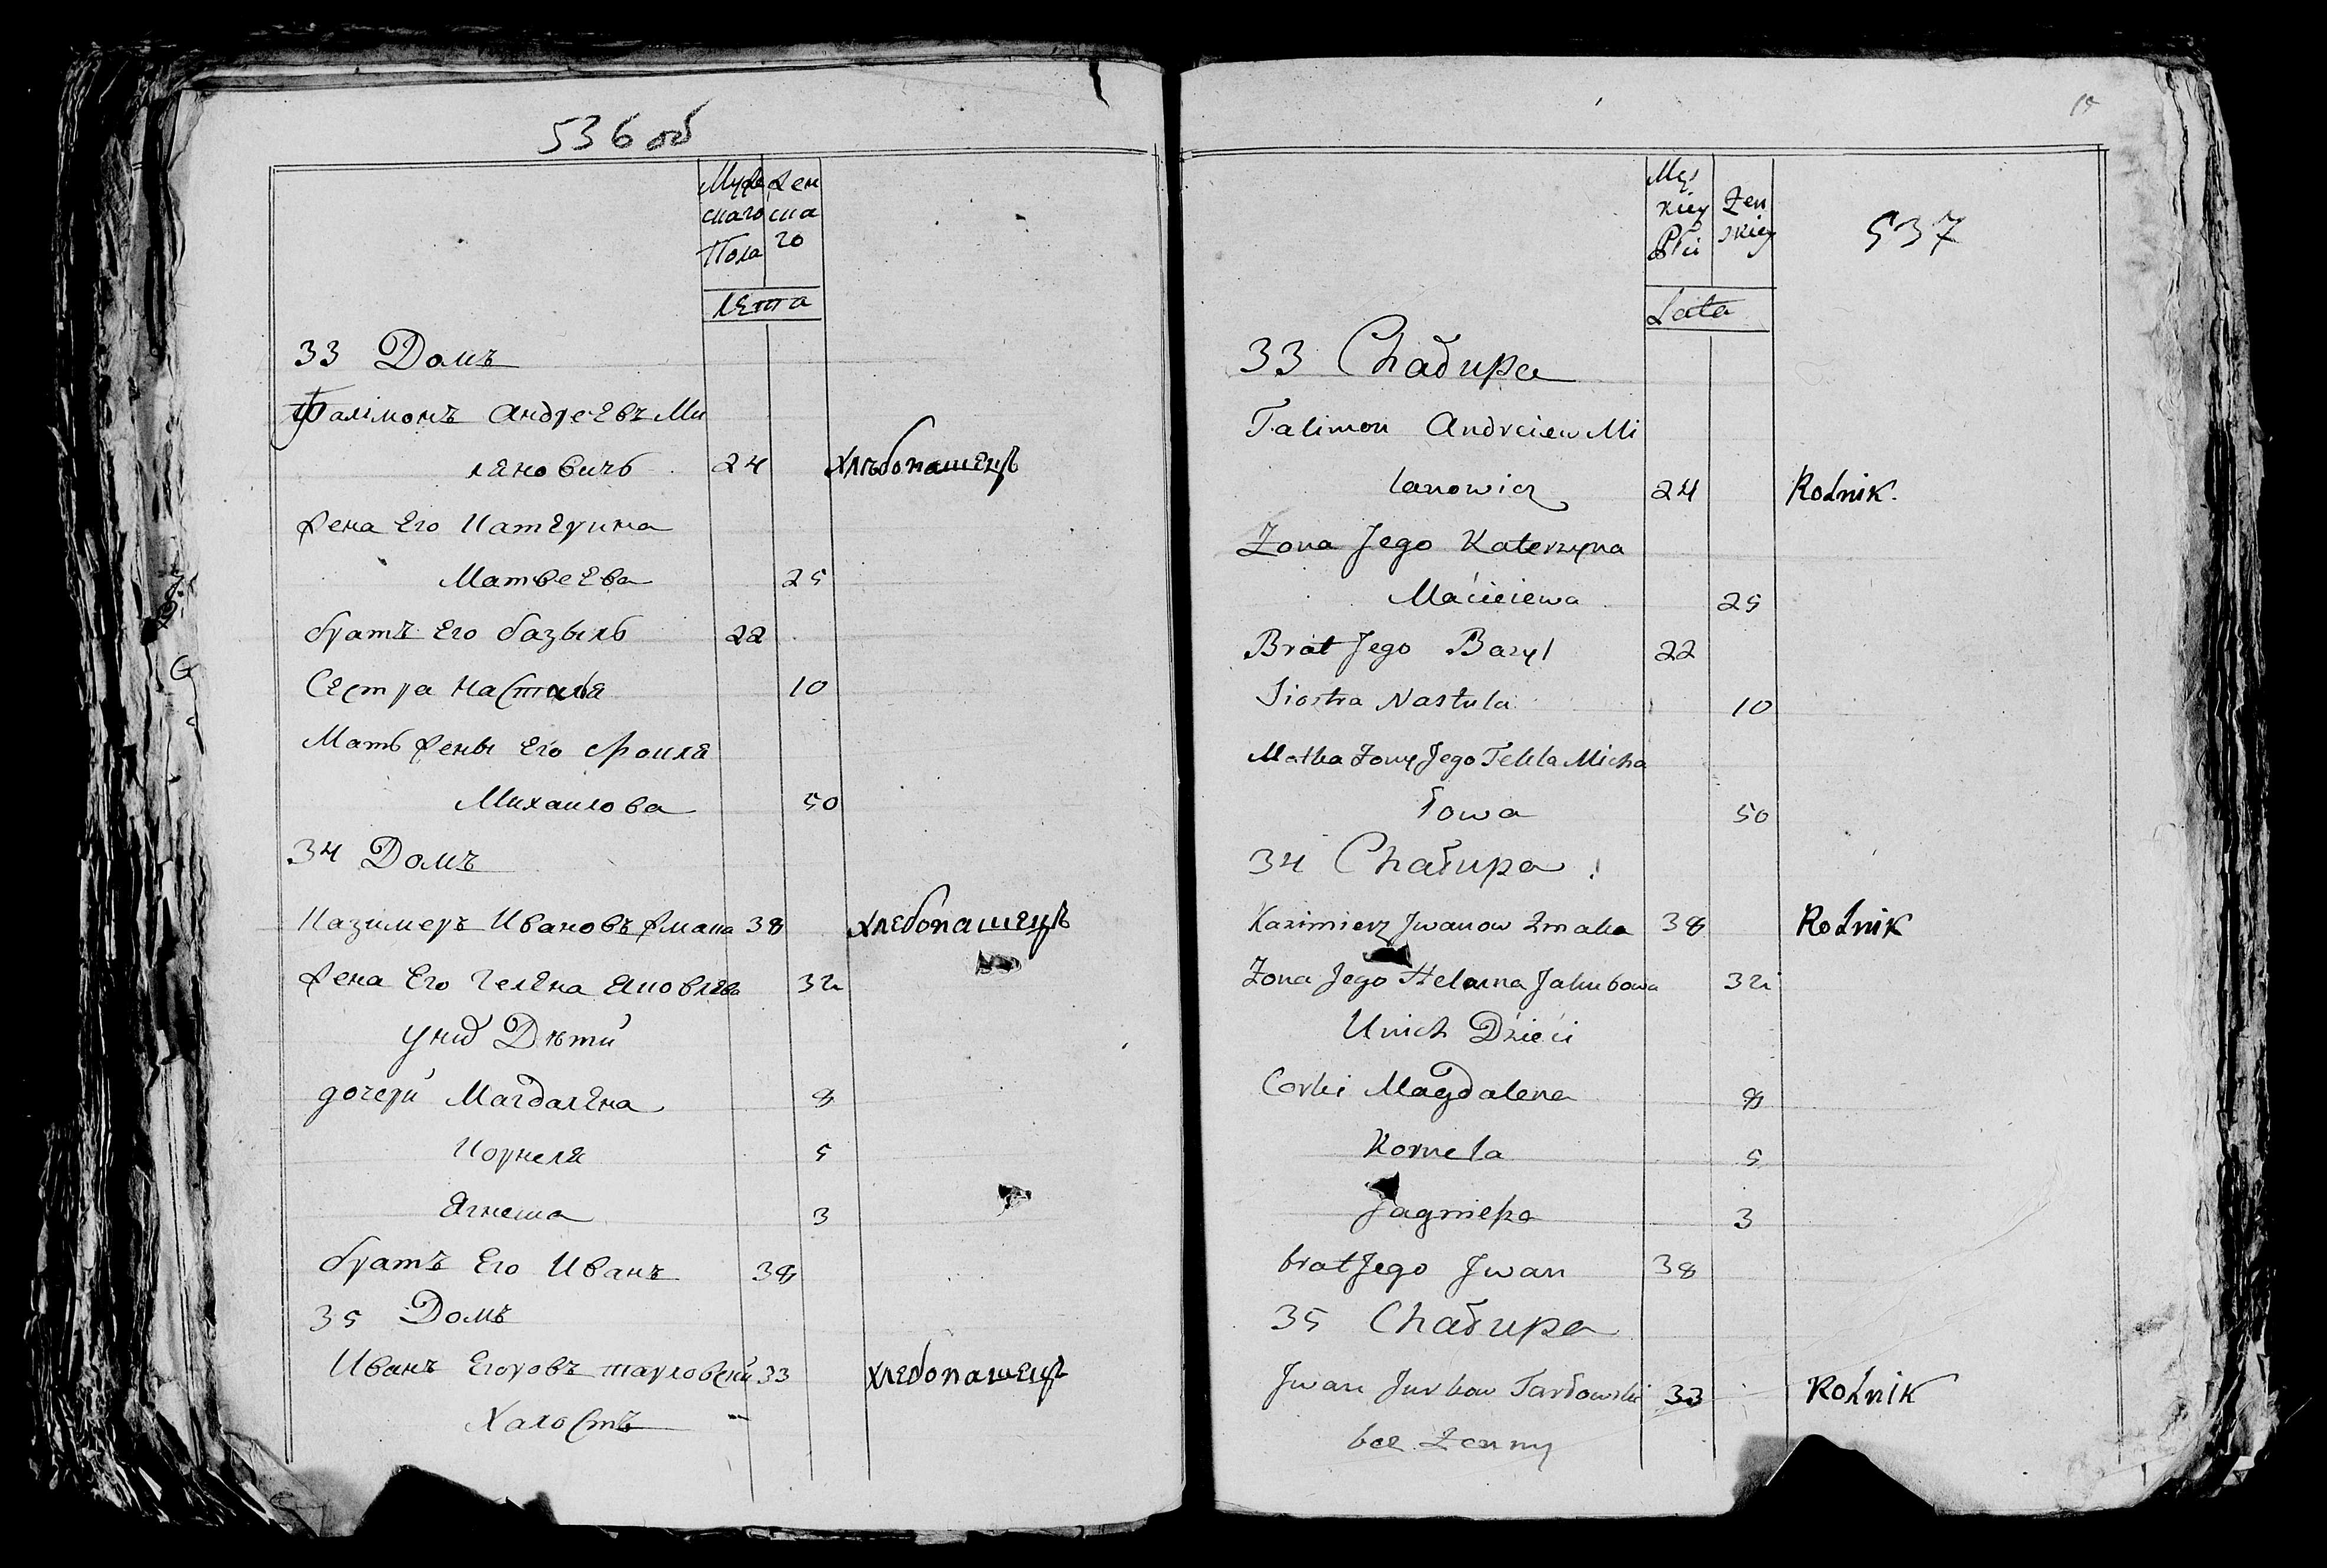 536 об
Мужескаго Пола
Женскаго
лета
33 Домъ
Фалимонъ Андреевъ Ми
ляновичь 24 Хлѣбопашецъ
Жена Его Катерина
Матвеева 25
братъ Его базыль 22
Сестра Настуля 10
Мать жены Его Фекля
Михаилова 50
34 Домъ
Казимеръ Ивановъ Жмака 38 Хлебопашецъ
Жена Его Гелена Яковлева 32
у них Дѣти
дочери Магдалена 8
Корнеля 5
Ягнеша 3
братъ Его Иванъ 38
35 Домъ
Иванъ Егоровъ тарловски 33 Хлебопашецъ
Халостъ
Męskiey Płci
Żenskiey
537
Lata
33 Chałupa
Talimon Andreiew Mi
lanowicz 24 Rolnik.
Żona Jego Katerzyna
Macieiewa 25
Brat Jego Bazyl 22
Siostra Nastula 10
Matka Żony Jego Tekla Micha
łowa 50
34 Chałupa
Kazimierz Jwanow Zmaka 38 Rolnik
Żona Jego Helena Jakubowa 32
U nich Dzieci
Corki Magdalena 8
Kornela 5
Jagniepa 3
brat Jego Jwan 38
35 Chałupa
Jwan Jurkow Tarłowski 33 Rolnik
bez Żenny